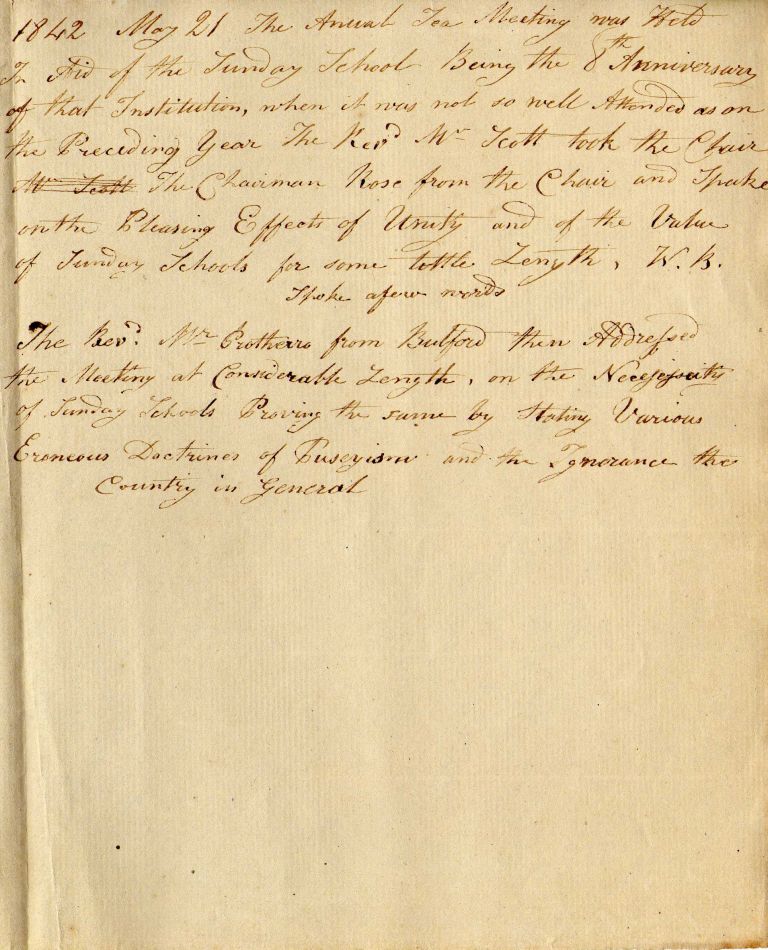 1842 May 21 The Anual Tea Meeting was Held
In Aid of the Sunday School Being the 8th Anniversary
of that Institution, when it was not so well Attended as on
the Preceding Year The Revd Mr Scott took the Chair
Mr Scott The Chairman Rose from the Chair and Spake
on the Pleasing Effects of Unity and of the Value
of Sunday Schools for some little Length, W. B.
Spoke a few words
The Revd. Mr Protherro from Bulford then Addressed
the Meeting at Considerable Length, on the
of Sunday Schools Proving the same by Stating Various
Eroneous Doctrines of Puseyism and the Ignorance the
Country in General